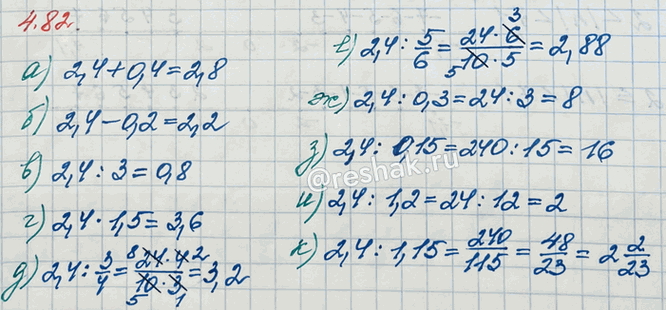 4.82.
а) 2,4+0,4=2,8
б) 2,4-0,2=2,2
в) 2,4:3=0,8
г) 2,4·1,5=3,6
д) 2,4:3/4=(8 24·4 2)/(5 10·3 1)=3,2
е) 2,4:5/6=(24·6 3)/(5 10·5)=2,88
ж) 2,4:0,3=24:3=8
з) 2,4:0,15=240:15=16
и) 2,4:1,2=24:12=2
к) 2,4:1,15=240/115=48/23=2 2/23
@reshak.ru